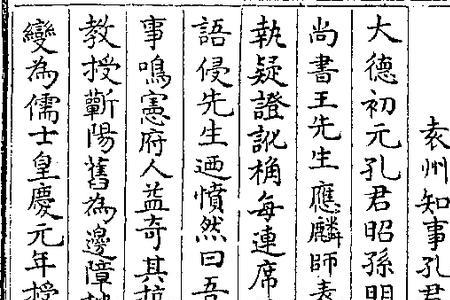 袁州知事孔君
大德初元孔君昭孫明
尚書王先生應麟師表
執疑證訛桷每連席
語侵先生迺憤然曰吾
事鳴憲府人益奇其抗
教授蘄陽舊為邊障
變為儒士皇慶元年授